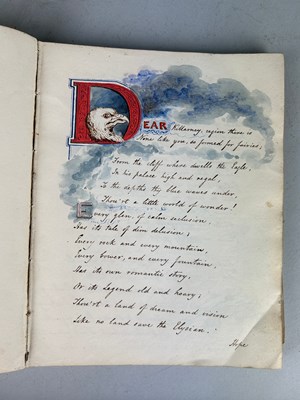 DEAR Killarney, region there is
None like you, so formed for fairies;
From the cliff where dwells the Eagle,
In his palace high and regal,
To the depths thy blue waves under
Thou'rt a little world of wonder!
Every glen, of calm seclusion,
Has its tale of dim delusion;
Every rock and every mountain,
Every bower, and every fountain,
Has its own romantic story,
Or its Legend old and hoary;
Thou'rt a land of dream and vision
Like no land save the Elysian.
Hope